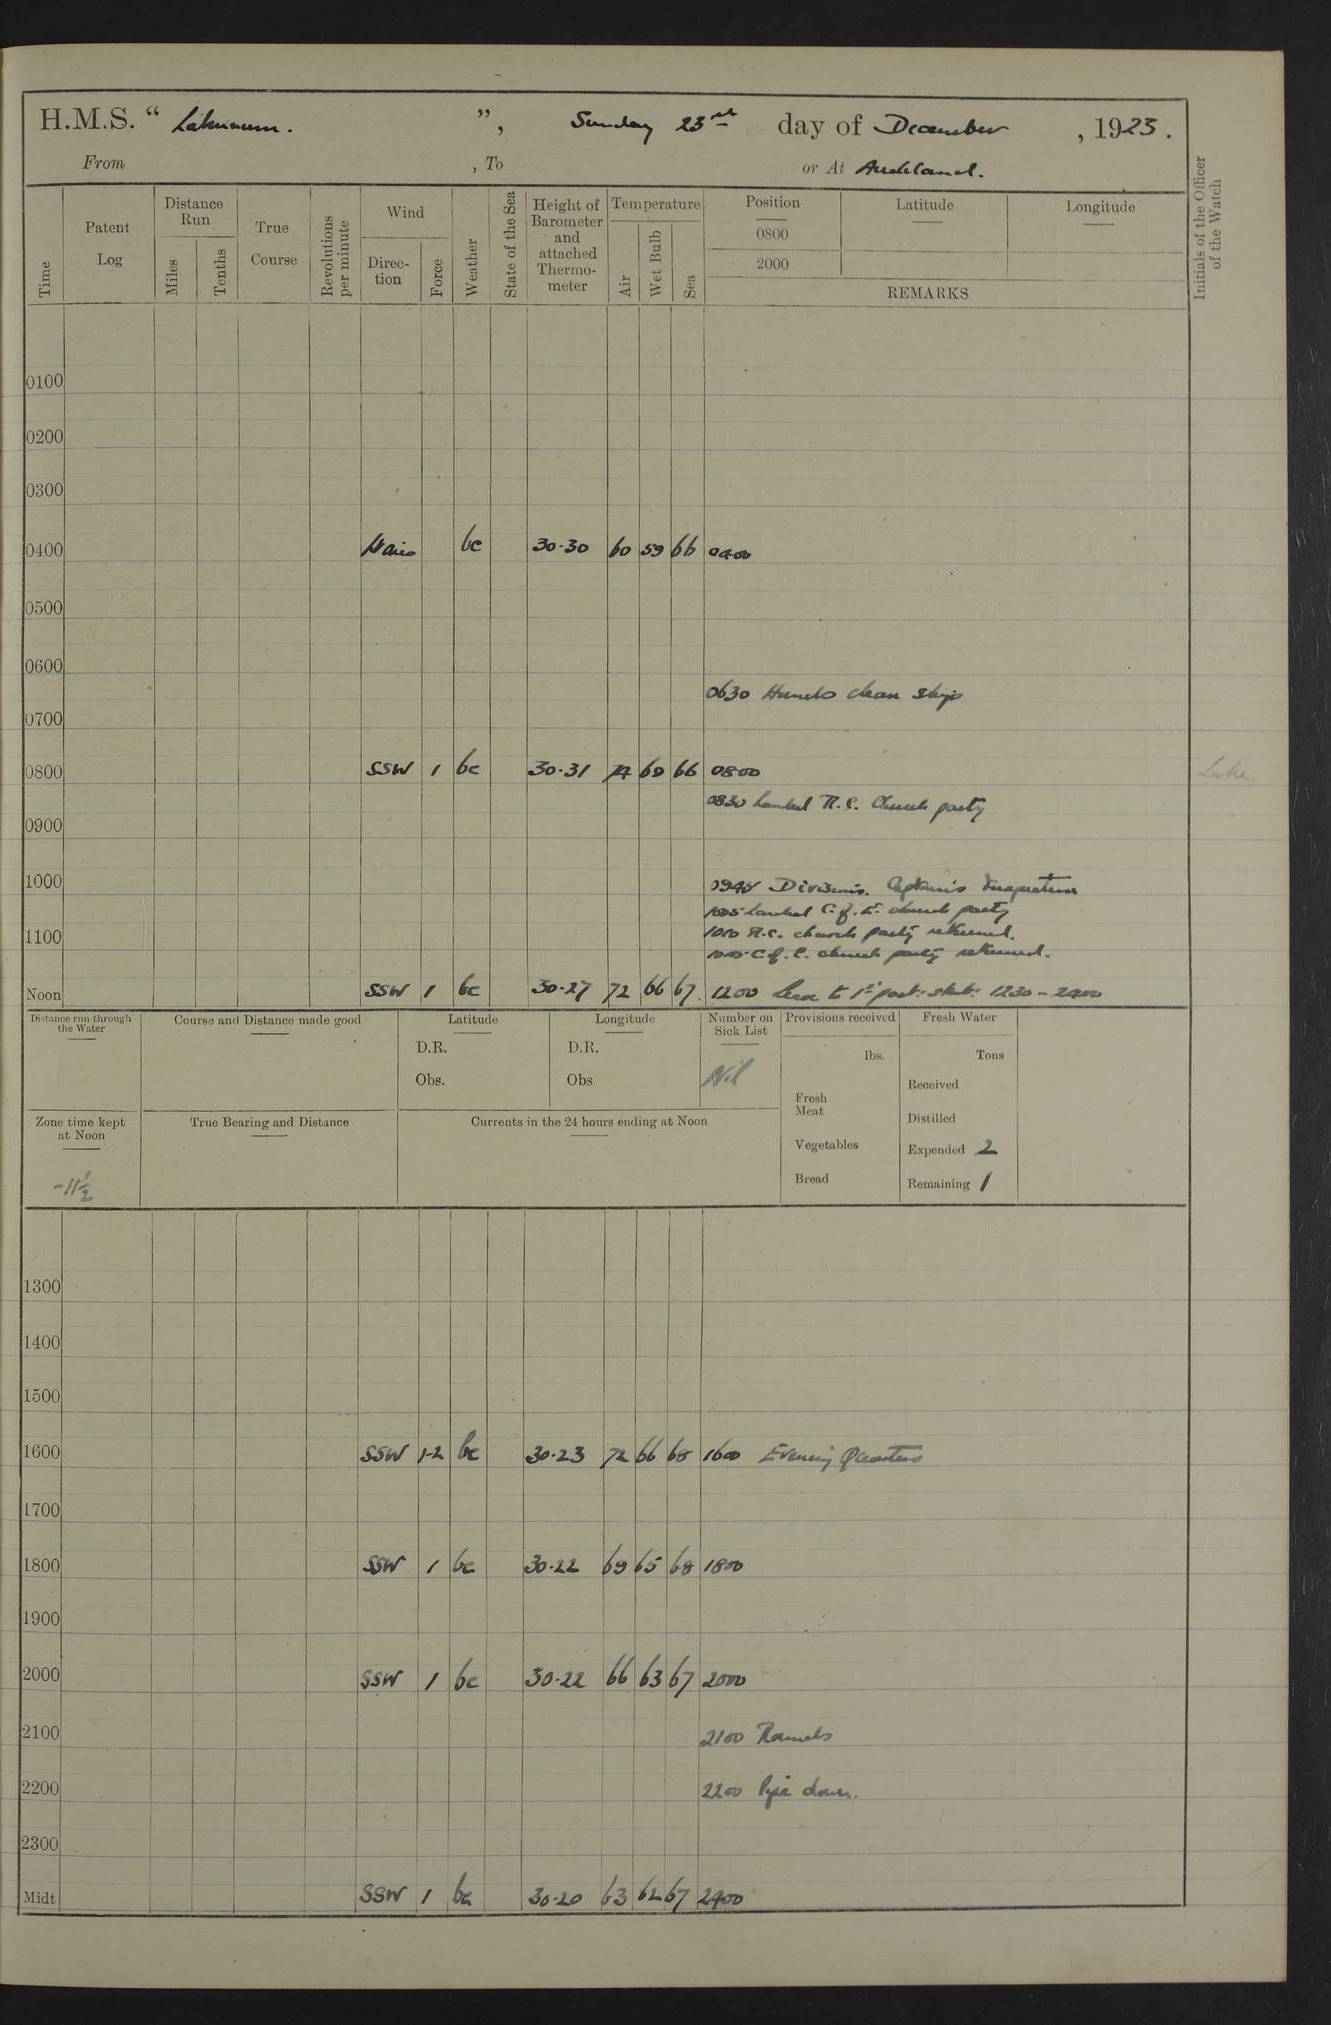 H.M.S. “ Laburnum. ”, Sunday 23rd day of December, 1923.
From , To or At Auckland.
Time
Patent Log
Distance Run
Miles
Tenths
True Course
Revolutions per minute
Wind
Direc-tion
Force
Weather
State of the Sea
Height of Barometer and attached Thermo-meter
Temperature
Air
Wet Bulb
Sea
Position Latitude Longitude
0800
2000
REMARKS
Initials of the Officer of the Watch
0100
0200
0300
0400 bc 30·30 60 59 66 0400
0500
0600
0630 Hands clean ship
0700
0800 SSW 1 bc 30·31 69 66 0800
0830 Landed R.C. Church party
0900
0945 Divisions. Captain's Inspection
1000
Landed C. of E. church party
1010 R.C. church party returned.
1100
C. of E. church party returned.
Noon SSW 1 bc 30·27 72 66 67 1200 Leave to 1st part: 1230 – 2400
Distance run through the Water
Course and Distance made good
Latitude
D.R.
Obs.
Longitude
D.R.
Obs
Number on Sick List
Nil
Provisions received
lbs.
Fresh Meat
Vegetables
Bread
Fresh Water
Tons
Received
Distilled
Expended 2
Remaining 1
Zone time kept at Noon
-11½
True Bearing and Distance
Currents in the 24 hours ending at Noon
1300
1400
1500
1600 SSW 1-2 bc 30·23 72 66 68 1600 Evening Quarters
1700
1800 SSW 1 bc 30·22 69 65 68 1800
1900
2000 SSW 1 bc 30·22 66 63 67 2000
2100 2100 Rounds
2200 2200 Pipe down.
2300
Midt SSW 1 bc 30·20 63 62 67 2400